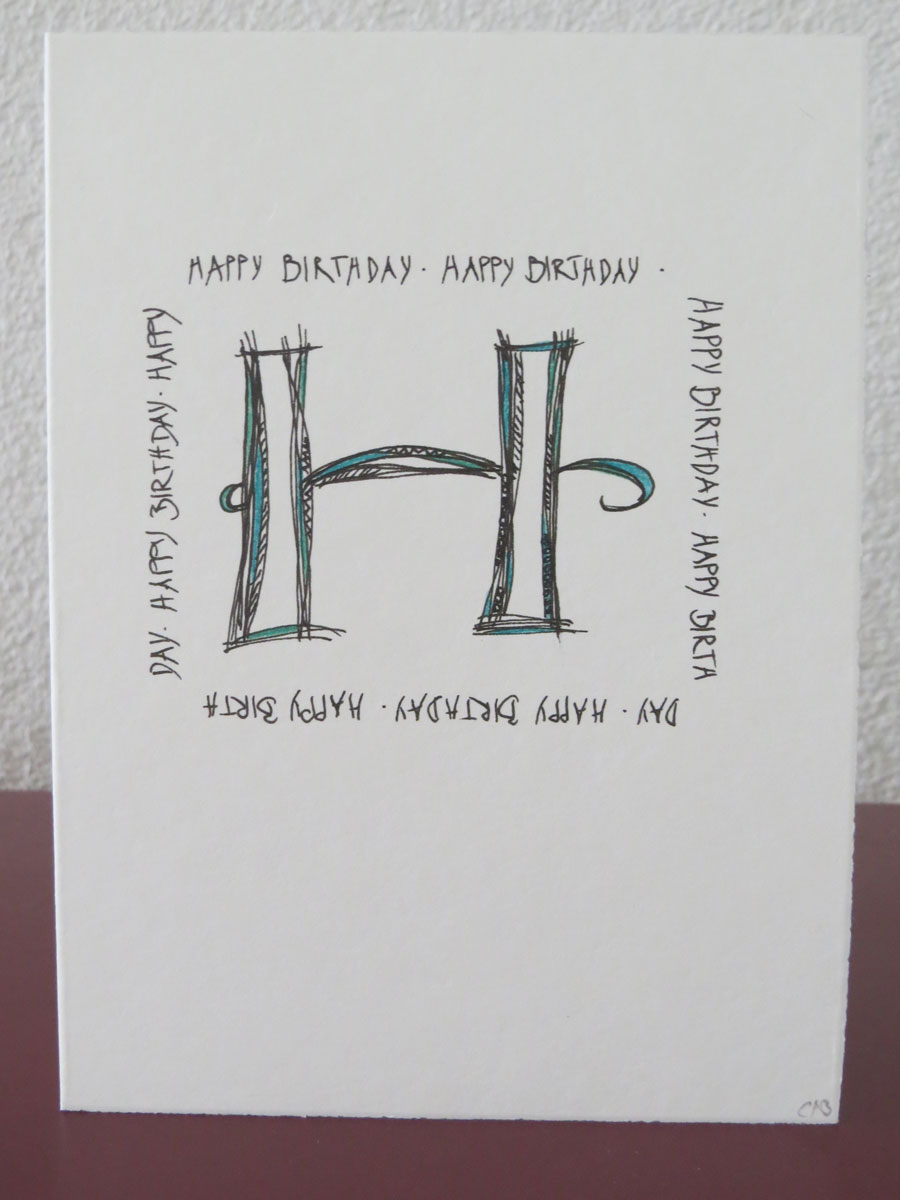 HAPPY BIRTHDAY · HAPPY BIRTHDAY ·
HAPPY BIRTHDAY · HAPPY BIRTA
DAY · HAPPY BIRTHDAY · HAPPY BIRTA
DAY · HAPPY BIRTHDAY · HAPPY
H
CAB